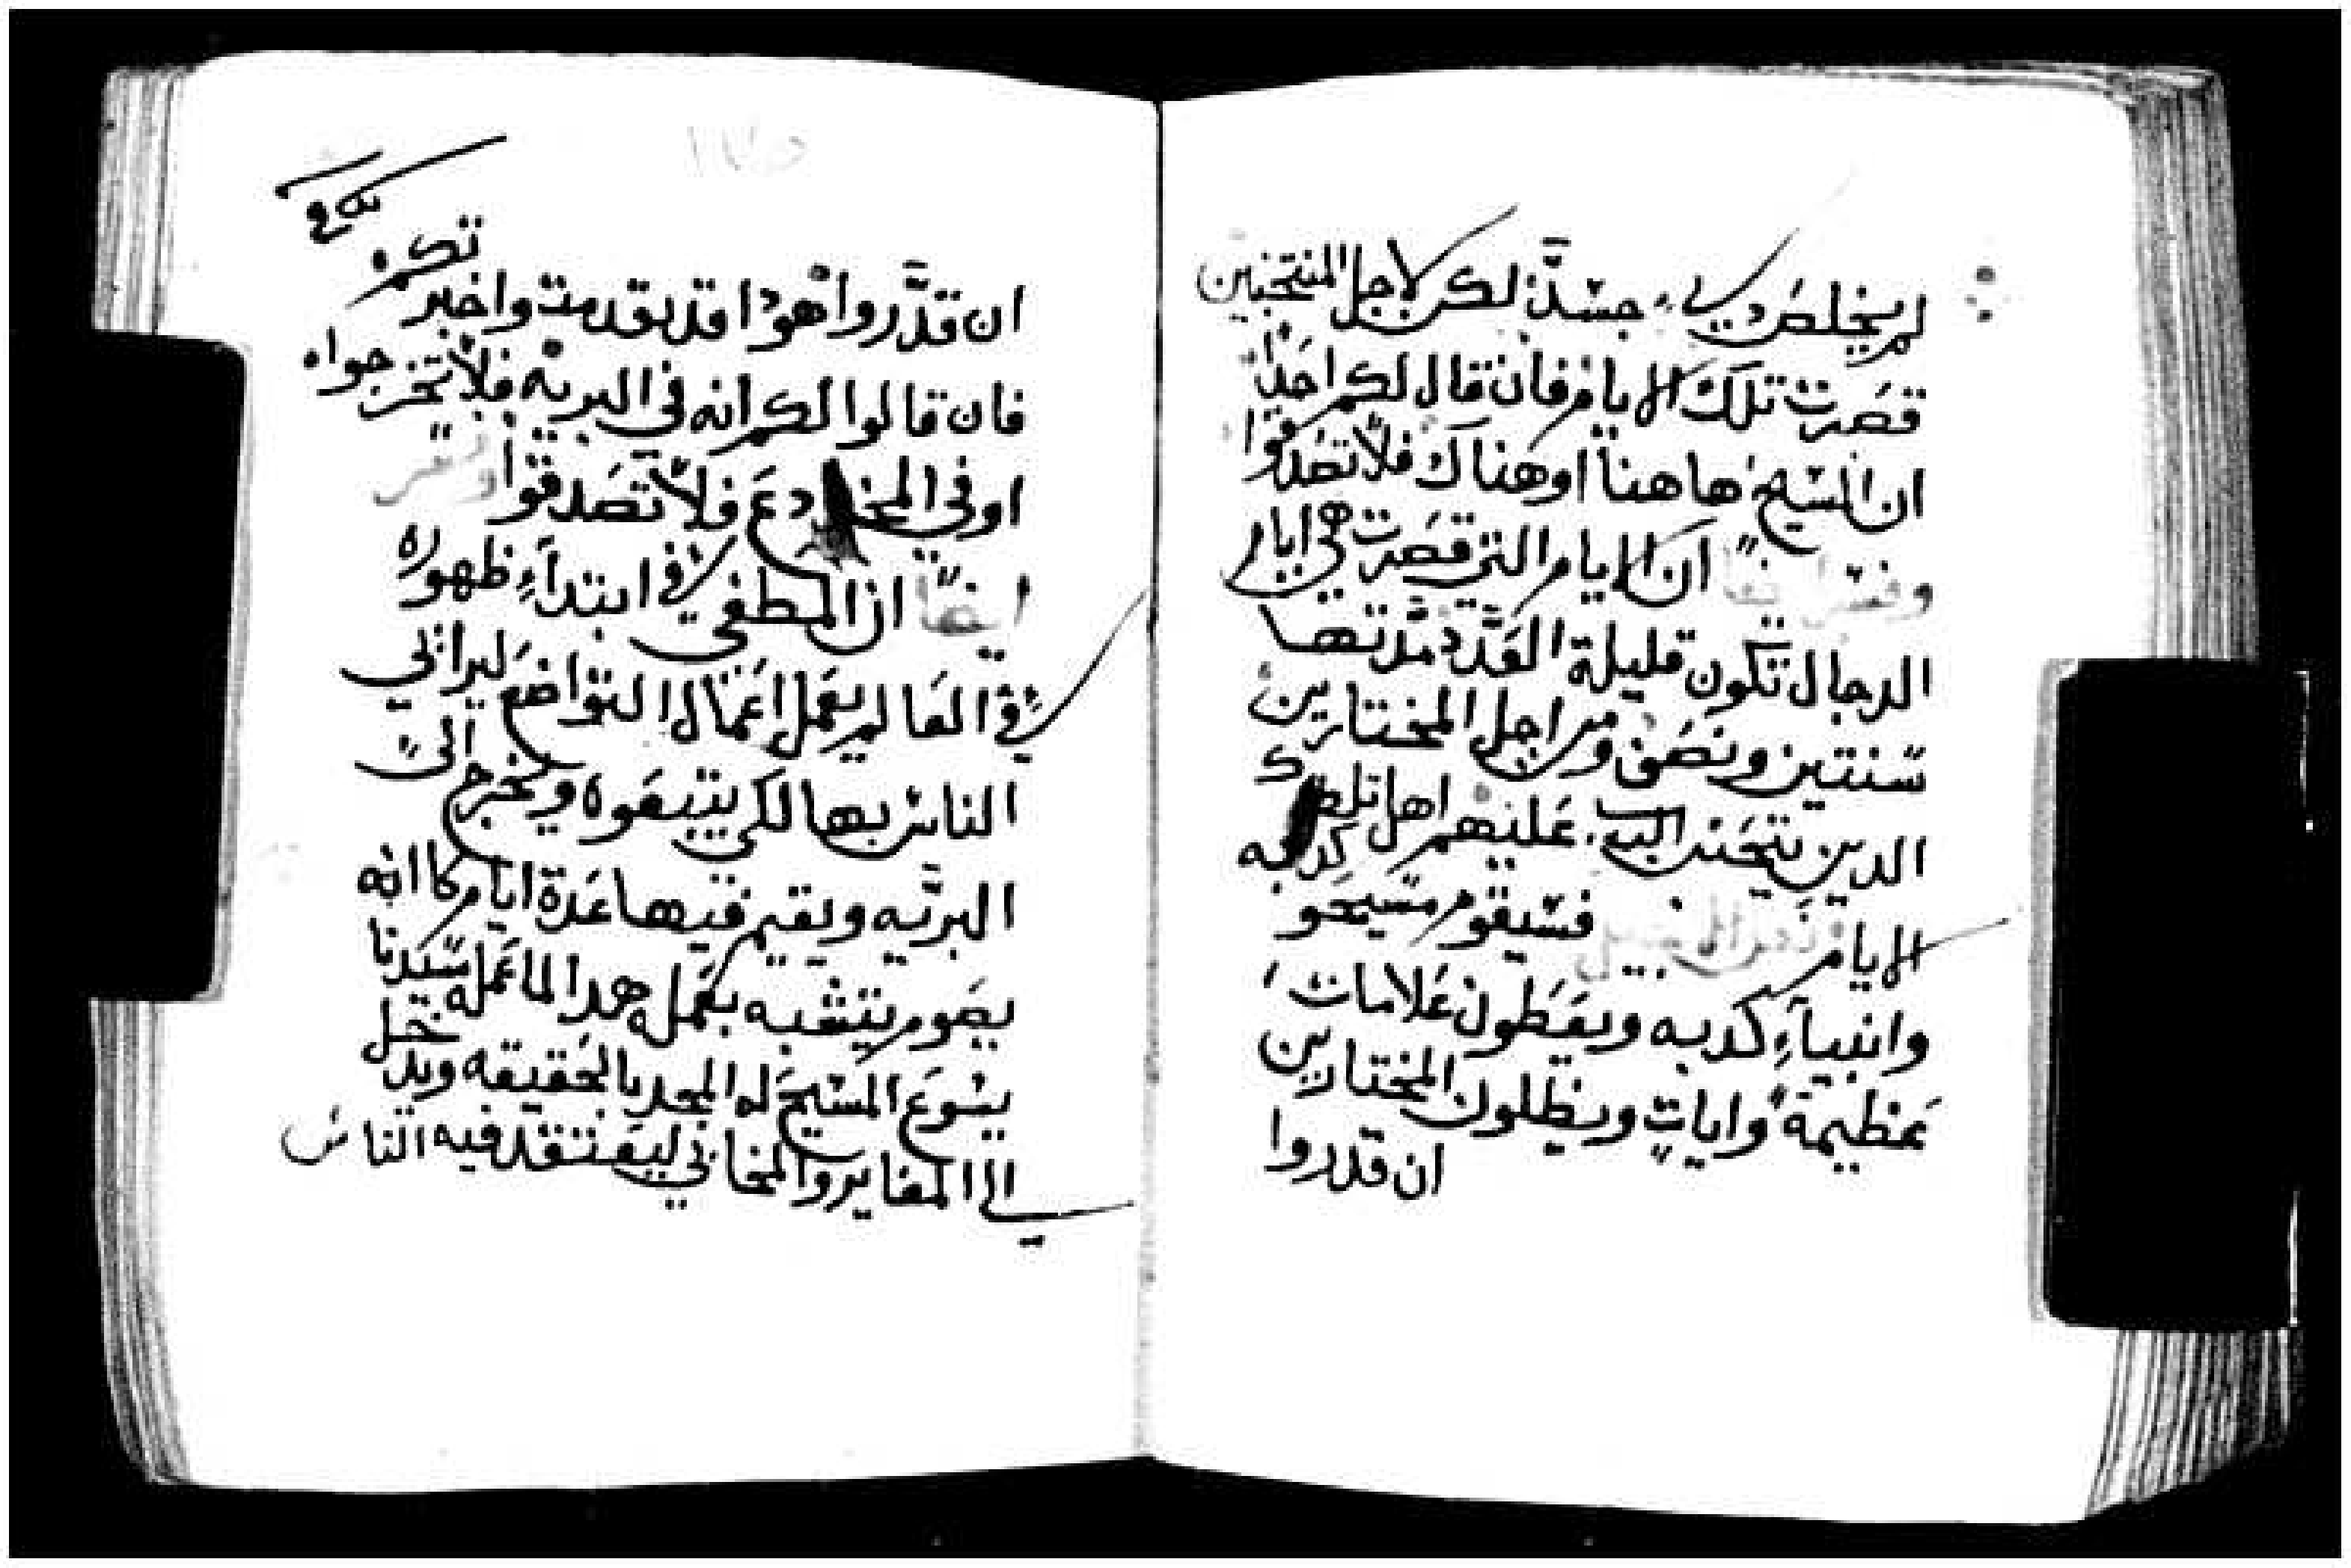 لم يخلص دي جسد لكن لاجل المنتخبين
قصرت تلك الايام فان قال لكم احد
ان المسيح هاهنا او هناك فلا تصدقوا
وفسر ايضا ان الايام التي قصرت هي ايام
الدجال تكون قليلة العدد مدتها
سنتين ونصف ومن اجل المختارين
الدين يتحنن الرب عليهم اهل تلك
الايام فسيقوم مسيحو كدبه
وانبياء كدبه ويعطون علامات
عظيمة وايات ويظلون المختارين
ان قدروا
ان قدروا هودا قد تقدمت واخبرتكم
فان قالوا لكم انه في البريه فلا تخرجوا
او في المخادع فلا تصدقوا وفسر
ايضا ان المطغي في ابتداء ظهوره
في العالم يعمل اعمال التواضع ليراي
الناس بها لكي يتبعوه ويخرج الى
البريه ويقيم فيها عدة ايام كانه
يصوم يتشبه بعمله هدا لما عمله سيدنا
يسوع المسيح له المجد بالحقيقه ويدخل
الى المغاير والمخابي ليعتقد فيه الناس